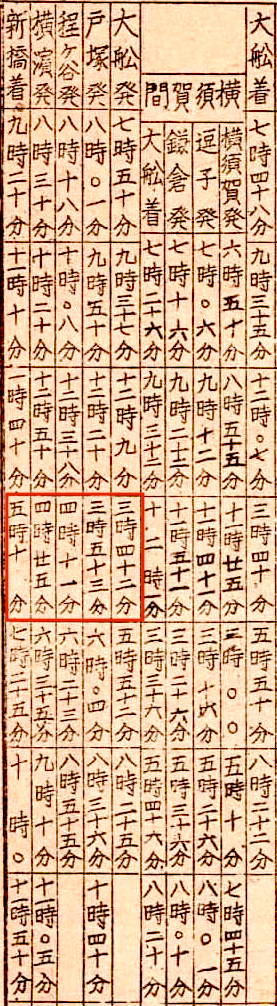 大舩発 七時四十八分 九時三十五分 十二時〇七分 三時四十分 五時五十分 八時二十二分
横須賀間
横須賀発 六時五十分 八時五十五分 十一時廿五分 三時〇〇 五時十分 七時四十五分
逗子発 七時〇六分 九時十二分 十一時四十一分 三時十六分 五時二十六分 八時〇一分
鎌倉発 七時十六分 九時二十二分 十一時五十一分 三時二十六分 五時三十六分 八時〇十分
大舩着 七時二十六分 九時三十二分 十二時分 三時三十六分 五時四十六分 八時二十分
大舩発 七時五十分 九時三十七分 十二時九分 三時四十二分 五時五十二分 八時二十五分
戸塚発 八時〇一分 九時五十分 十二時二十分 三時五十三分 六時〇四分 八時三十六分 十時四十分
程ヶ谷発 八時十八分 十時〇八分 十二時三十八分 四時十一分 六時二十三分 八時五十五分
横濵発 八時三十分 十時二十分 十二時五十分 四時廿五分 六時三十五分 九時十分 十一時〇五分
新橋着 九時二十分 十一時十分 一時四十分 五時十分 七時二十五分 十時〇 十一時五十分